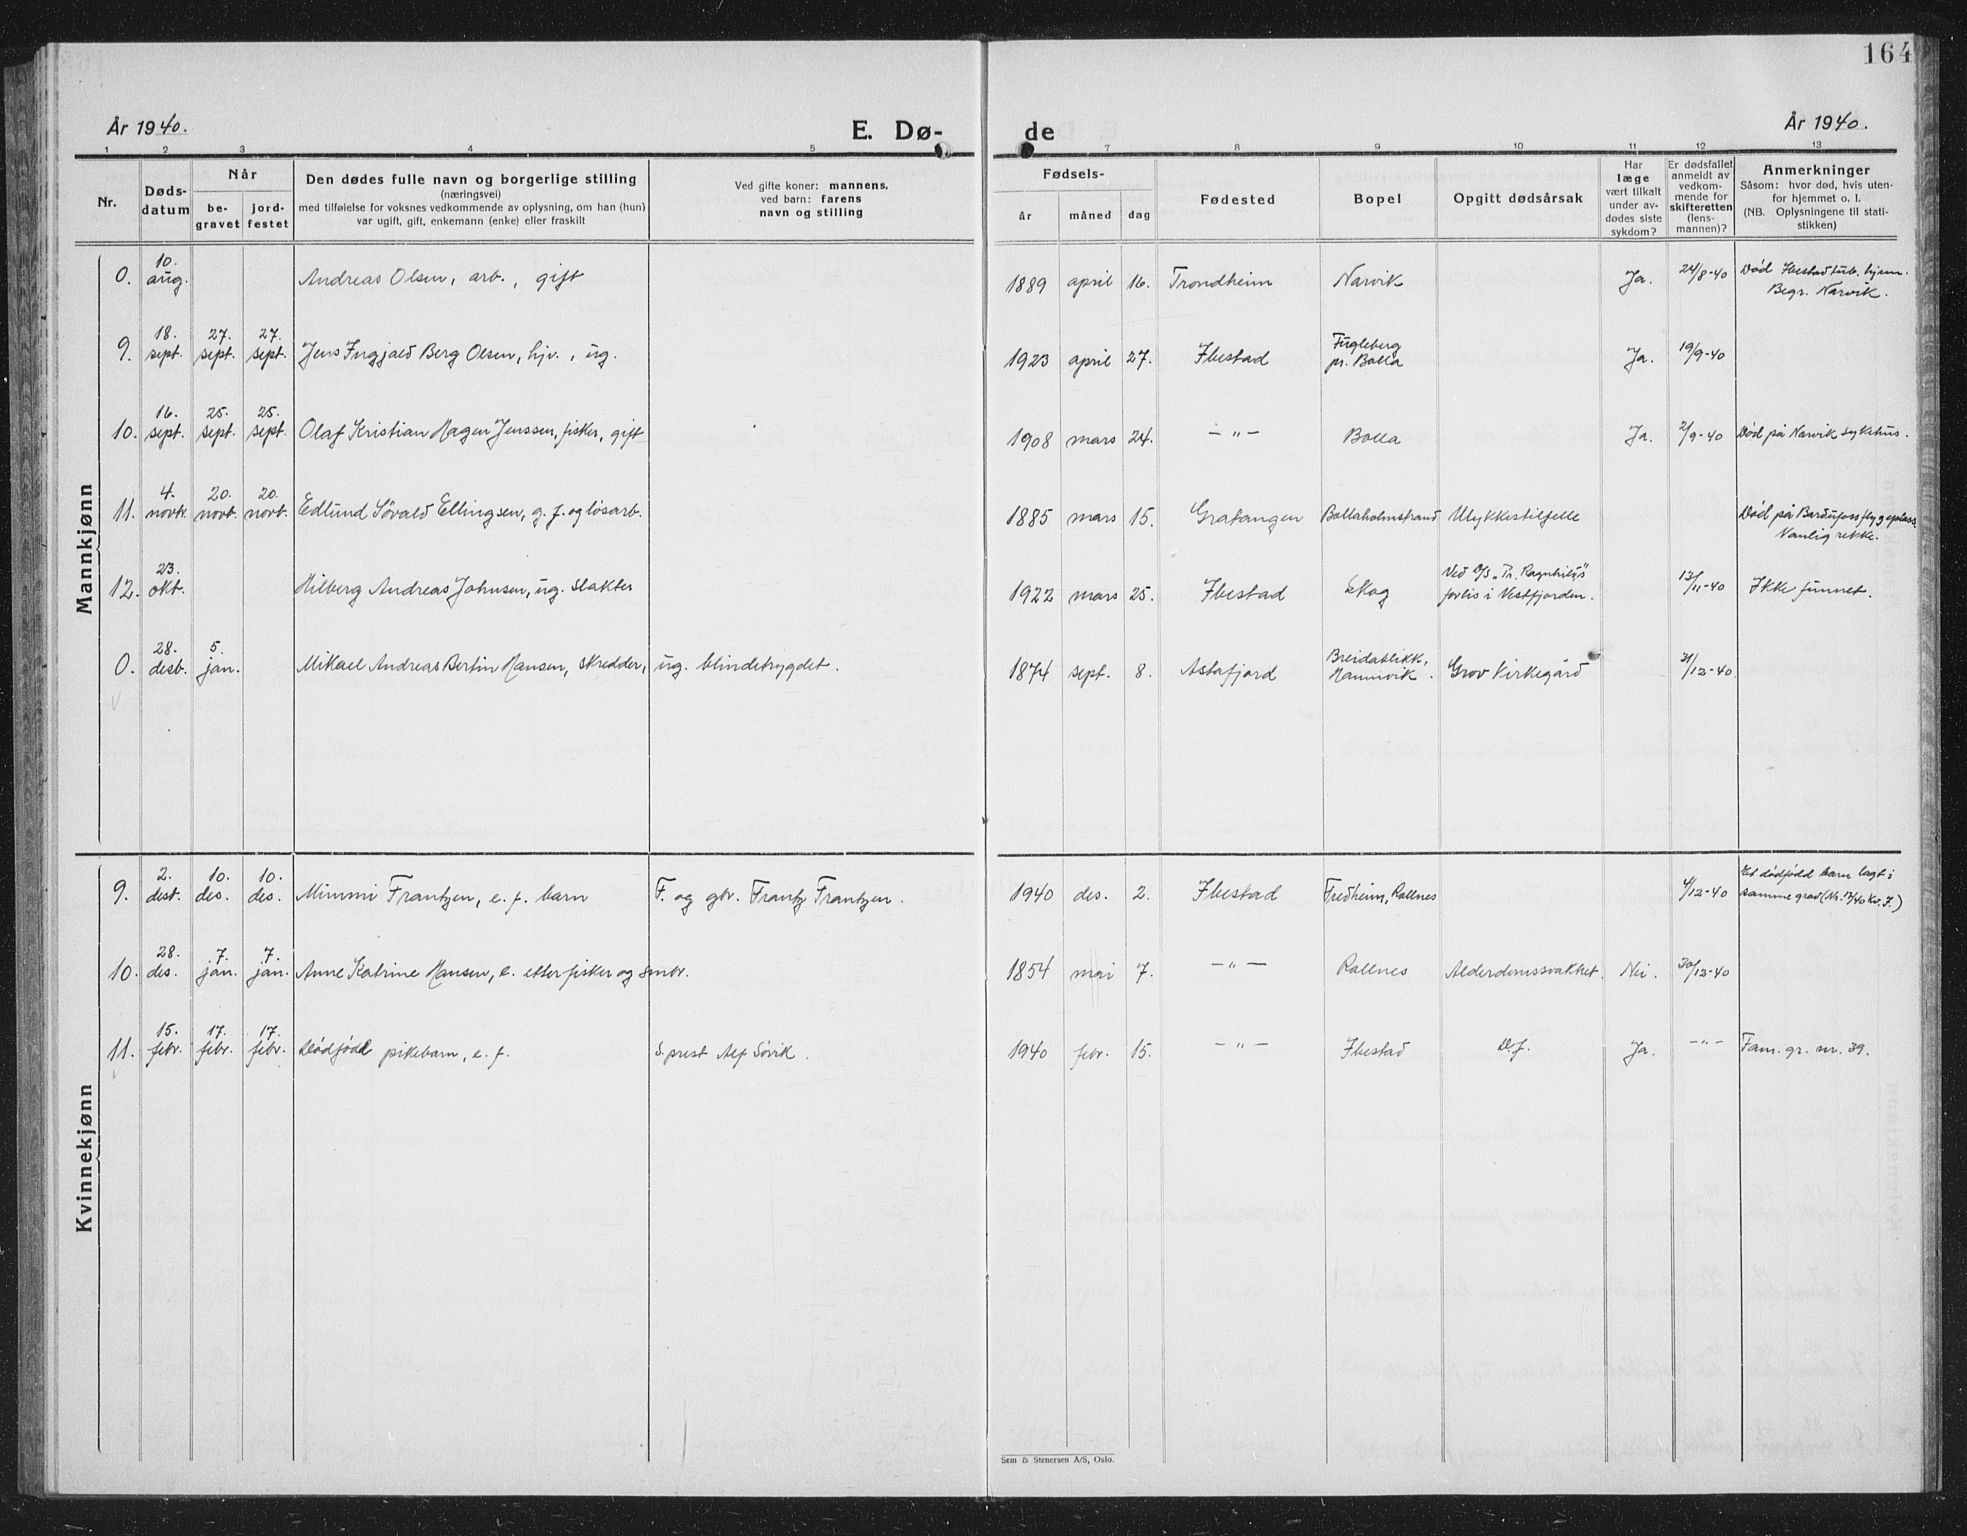 164
År 1940.
E. Dø-
de
År 1940.
1 2 3 4 5 7 8 9 10 11 12 13
Nr.
Døds-
datum
Når
be-
gravet
jord-
festet
Den dødes fulle navn og borgerlige stilling
(næringsvei)
med tilføielse for voksnes vedkommende av oplysning, om han (hun)
var ugift, gift, enkemann (enke) eller fraskilt
Ved gifte koner: mannens,
ved barn: farens
navn og stilling
Fødsels-
år måned dag
Fødested
Bopel
Opgitt dødsårsak
Har
læge
vært tilkalt
under av-
dødes siste
sykdom?
Er dødsfallet
anmeldt av
vedkom-
mende for
skifteretten
(lens-
mannen)?
Anmerkninger
Såsom: hvor død, hvis uten-
for hjemmet o. l.
(NB. Oplysningene til stati-
stikken)
Mannkjønn
0. 10. aug. Andreas Olsen, arb., gift 1889 april 16. Trondheim Narvik Ja. 24/8-40 Død Ibestad tub. hjem.
Begr. Narvik.
9. 18. sept. 27. sept. 27. sept. Jens Ingjald Berg Olsen, hjv., ug. 1923 april 27. Ibestad Fugleberg
pr. Bolla Ja. 19/9-40
10. 16. sept. 25. sept. 25. sept. Olaf Kristian Hagen Jenssen, fisker, gift 1908 mars 24. -"- Bolla Ja. 21/9-40 Død på Narvik sykehus.
11. 4. novb. 20. novb. 20. novb. Edlund Søvald Ellingsen, g. f. og løsarb. 1885 mars 15. Gratangen Bollaholmstrand Ulykkestilfelle Død på Bardufoss flygeplass
Vanlig rekke.
12. 23. okt. Hilberg Andreas Johnsen, ug. slakter 1922 mars 25. Ibestad Skog Ved D/S "Pr. Ragnhild's"
forlis i Vestfjorden. 13/11-40 Ikke funnet.
0. 28. desb. 5. jan. Mikael Andreas Bertin Hansen, skredder, ug. blindetrygdet. 1874 sept. 8. Astafjord Breidablikk,
Hamnvik. Grov kirkegård 31/12-40
Kvinnekjønn
9. 2. des. 10. des. 10. des. Mimmi Frantzen, e. f. barn F. og gbr. Frantz Frantzen. 1940 des. 2. Ibestad Fredheim, Rollnes 4/12-40 Et dødfødd barn lagt i
samme grav
10. 28. des. 7. jan. 7. jan. Anne Katrine Hansen, e. etter fisker og smbr. 1854 mai 7. -"- Rollnes Alderdomssvakhet. Nei. 30/12-40
11. 15. febr. 17. febr. 17. febr. Dødfødd pikebarn, e. f. S. prest Alf Søvik. 1940 febr. 15. -"- Ibestad D.f. Ja. -"- Fam. gr. nr. 39.
Sem & Stenersen A/S, Oslo.